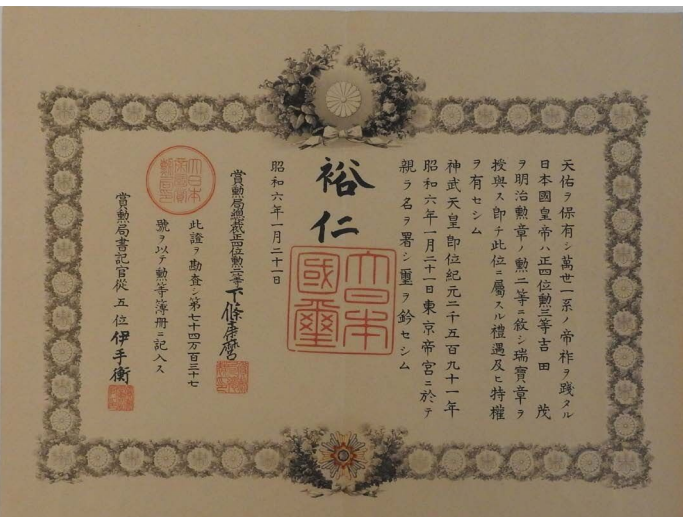 天佑ヲ保有シ萬世一系ノ帝祚ヲ踐タル
日本國皇帝ハ正四位勲三等吉田茂
ヲ明治勲章ノ勲二等ニ敘シ瑞寶章ヲ
授與ス即チ此位ニ屬スル禮遇及ヒ特權
ヲ有セシム
神武天皇即位紀元二千五百九十一年
昭和六年一月二十一日東京帝宮ニ於テ
親ラ名ヲ署シ璽ヲ鈐セシム
裕仁
大日本國璽
昭和六年一月二十一日
賞勲局總裁正四位勲二等下條康麿
此證ヲ勘査シ第七十四万百三十七
號ヲ以テ勲等簿冊ニ記入ス
賞勲局書記官從五位伊手衡